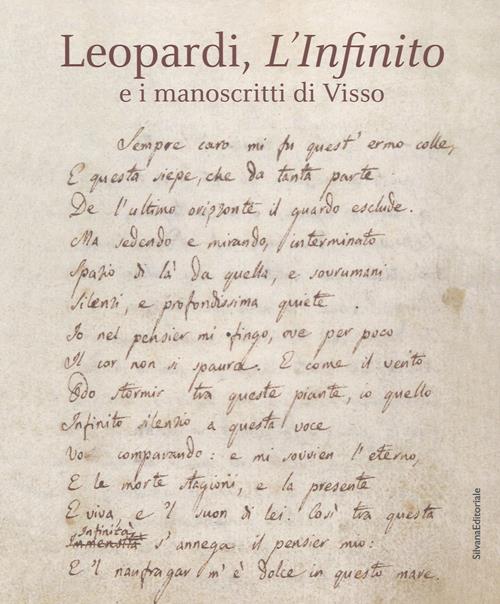 Leopardi, L'Infinito
e i manoscritti di Visso
Sempre caro mi fu quest' ermo colle,
E questa siepe, che da tanta parte
De l'ultimo orizzonte il guardo esclude.
Ma sedendo e mirando, interminato
Spazio di là da quella, e sovrumani
Silenzi, e profondissima quiete
Io nel pensier mi fingo, ove per poco
Il cor non si spaura. E come il vento
Odo stormir tra queste piante, io quello
Infinito silenzio a questa voce
Vo comparando: e mi sovvien l'eterno,
E le morte stagioni, e la presente
E viva, e 'l suon di lei. Così tra questa
Infinità
Immensità s'annega il pensier mio:
E 'l naufragar m'è dolce in questo mare.
SilvanaEditoriale